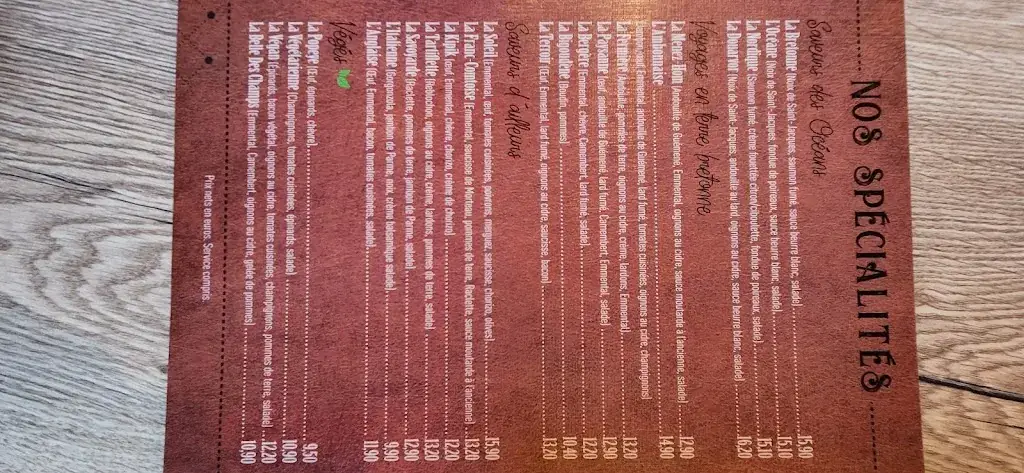 NOS SPÉCIALITÉS
Saveurs des Océans
La Bréhime (Noix de Saint-Jacques, saumon fumé, sauce beurre blanc, salade) 15.90
L'Océane (Noix de Saint-Jacques, fondue de poireaux, sauce beurre blanc, salade) 15.10
La Nordique (Saumon fumé, crème fouettée citron/ciboulette, fondue de poireaux, salade) 15.10
La Douarun (Noix de Saint-Jacques, andouille au lard, oignons au cidre, sauce beurre blanc, salade) 16.20
Voyages en terre bretonne
La Breizh Tom (Andouille de Guémené, Emmental, oignons au cidre, sauce moutarde à l'ancienne, salade) 12.90
L'Armoricaine 14.90
(Emmental, andouille de Guémené, lard fumé, tomates cuisinées, oignons au cidre, champignons)
La Fermière (Andouille, pommes de terre, oignons au cidre, crème, lardons, Emmental) 13.20
La Paysanne (œuf, andouille de Guémené, lard fumé, Camembert, Emmental, salade) 12.90
La Bergère (Emmental, chèvre, Camembert, lard fumé, salade) 12.20
La Bigoudène (Boudin, pommes) 10.40
La Terroir (Œuf, Emmental, lard fumé, oignons au cidre, saucisse, bacon) 13.20
Saveurs d'ailleurs
La Soleil (Emmental, œuf, tomates cuisinées, poivrons, merguez, saucisse, chorizo, olives) 15.90
La Franc-Comtoise (Emmental, saucisse de Morteau, pommes de terre, Raclette, sauce moutarde à l'ancienne) 13.20
La Catals (œuf, Emmental, chèvre, chorizo, crème de chorizo) 12.20
La Tartiflette (Reblochon, oignons au cidre, crème, lardons, pommes de terre, salade) 13.20
La Savoyarde (Raclette, pommes de terre, jambon de Parme, salade) 12.90
L'Italienne (Gorgonzola, jambon de Parme, noix, crème balsamique salade) 9.90
L'Anglaise (Œuf, Emmental, bacon, tomates cuisinées, salade) 11.90
Végés
La Popeye (Œuf, épinards, chèvre) 9.50
La Végétarienne (Champignons, tomates cuisinées, épinards, salade) 10.90
La Vegan (Épinards, bacon végétal, oignons au cidre, tomates cuisinées, champignons, pommes de terre, salade) 12.20
La Belle Des Champs (Emmental, Camembert, oignons au cidre, gelée de pommes) 10.90
Prix nets en euros. Service compris.